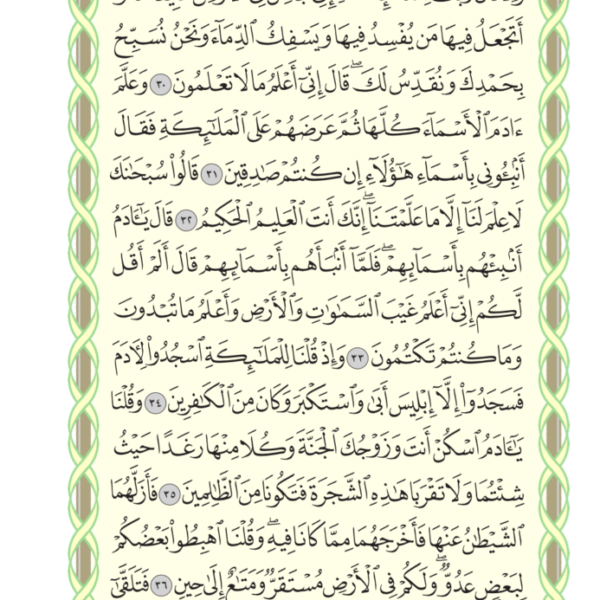 أَتَجْعَلُ فِيهَا مَن يُفْسِدُ فِيهَا وَيَسْفِكُ ٱلدِّمَآءَ وَنَحْنُ نُسَبِّحُ
بِحَمْدِكَ وَنُقَدِّسُ لَكَۖ قَالَ إِنِّىٓ أَعْلَمُ مَا لَا تَعْلَمُونَ ٣٠ وَعَلَّمَ
ءَادَمَ ٱلْأَسْمَآءَ كُلَّهَا ثُمَّ عَرَضَهُمْ عَلَى ٱلْمَلَـٰٓئِكَةِ فَقَالَ
أَنۢبِـُٔونِى بِأَسْمَآءِ هَـٰٓؤُلَآءِ إِن كُنتُمْ صَـٰدِقِينَ ٣١ قَالُوا۟ سُبْحَـٰنَكَ
لَا عِلْمَ لَنَآ إِلَّا مَا عَلَّمْتَنَآۖ إِنَّكَ أَنتَ ٱلْعَلِيمُ ٱلْحَكِيمُ ٣٢ قَالَ يَـٰٓـَٔادَمُ
أَنۢبِئْهُم بِأَسْمَآئِهِمْۖ فَلَمَّآ أَنۢبَأَهُم بِأَسْمَآئِهِمْ قَالَ أَلَمْ أَقُل
لَّكُمْ إِنِّىٓ أَعْلَمُ غَيْبَ ٱلسَّمَـٰوَٰتِ وَٱلْأَرْضِ وَأَعْلَمُ مَا تُبْدُونَ
وَمَا كُنتُمْ تَكْتُمُونَ ٣٣ وَإِذْ قُلْنَا لِلْمَلَـٰٓئِكَةِ ٱسْجُدُوا۟ لِـَٔادَمَ
فَسَجَدُوٓا۟ إِلَّآ إِبْلِيسَ أَبَىٰ وَٱسْتَكْبَرَ وَكَانَ مِنَ ٱلْكَـٰفِرِينَ ٣٤ وَقُلْنَا
يَـٰٓـَٔادَمُ ٱسْكُنْ أَنتَ وَزَوْجُكَ ٱلْجَنَّةَ وَكُلَا مِنْهَا رَغَدًا حَيْثُ
شِئْتُمَا وَلَا تَقْرَبَا هَـٰذِهِ ٱلشَّجَرَةَ فَتَكُونَا مِنَ ٱلظَّـٰلِمِينَ ٣٥ فَأَزَلَّهُمَا
ٱلشَّيْطَـٰنُ عَنْهَا فَأَخْرَجَهُمَا مِمَّا كَانَا فِيهِۖ وَقُلْنَا ٱهْبِطُوا۟ بَعْضُكُمْ
لِبَعْضٍ عَدُوٌّۖ وَلَكُمْ فِى ٱلْأَرْضِ مُسْتَقَرٌّ وَمَتَـٰعٌ إِلَىٰ حِينٍ ٣٦ فَتَلَقَّىٰٓ